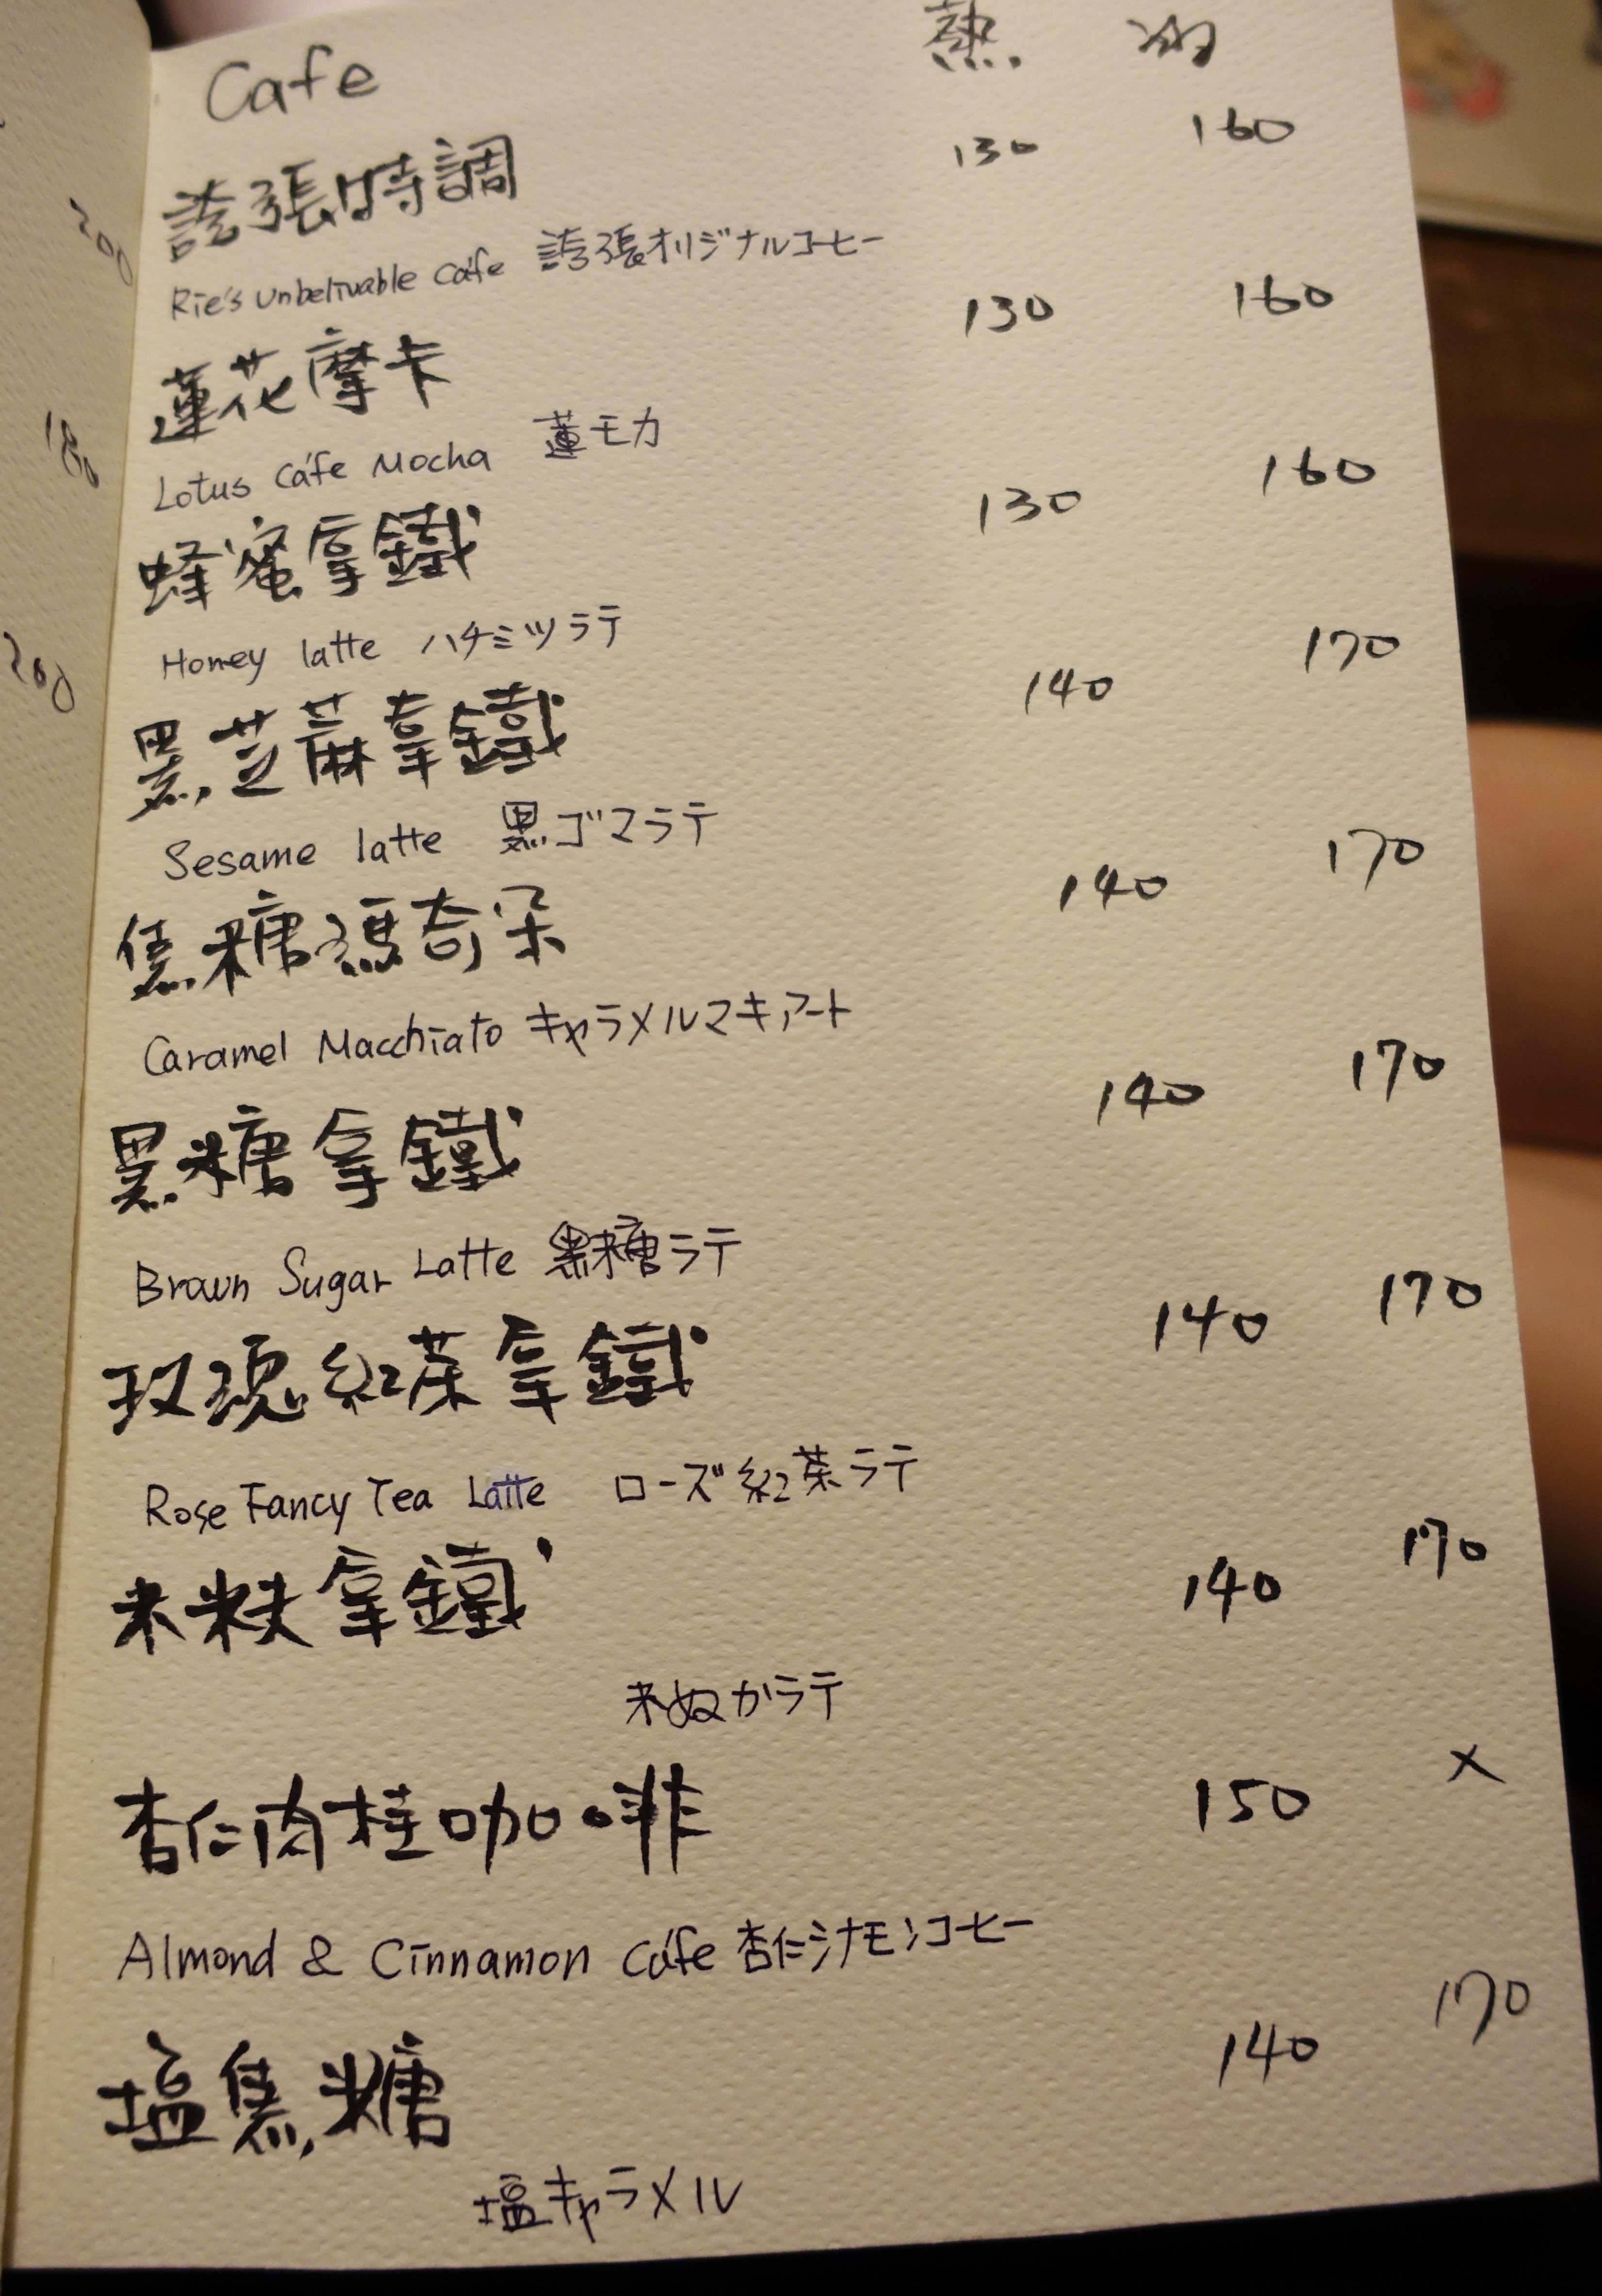 200
180
200
Cafe 熱 冰
誇張時調 130 160
Rie's unbelivable cafe 誇張オリジナルコーヒー
蓮花摩卡 130 160
Lotus cáfe Mocha 蓮モカ
蜂蜜拿鐵 130 160
Honey latte ハチミツラテ
黑芝蔴拿鐵 140 170
Sesame latte 黒ゴマラテ
焦糖瑪奇朵 140 170
Caramel Macchiato キャラメルマキアート
黑糖拿鐵 140 170
Brown Sugar Latte 黒糖ラテ
玫瑰紅茶拿鐵 140 170
Rose Fancy Tea Latte ローズ紅茶ラテ
米麩拿鐵 140 170
米ぬかラテ
杏仁肉桂咖啡 150 x
Almond & Cinnamon cáfe 杏仁シナモンコーヒー
塩焦糖 140 170
塩キャラメル